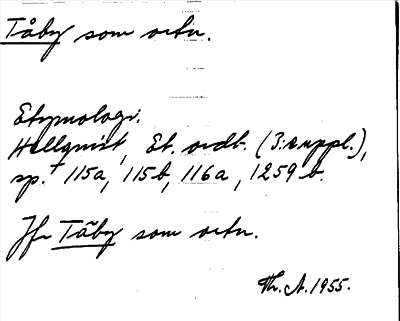 Tåby som ortn.
Etymologi.
Hellqvist, Et. ordb. (3:e uppl.),
sp. 115a, 115b, 116a, 1259b.
Jfr Täby som ortn.
Th. A. 1955.